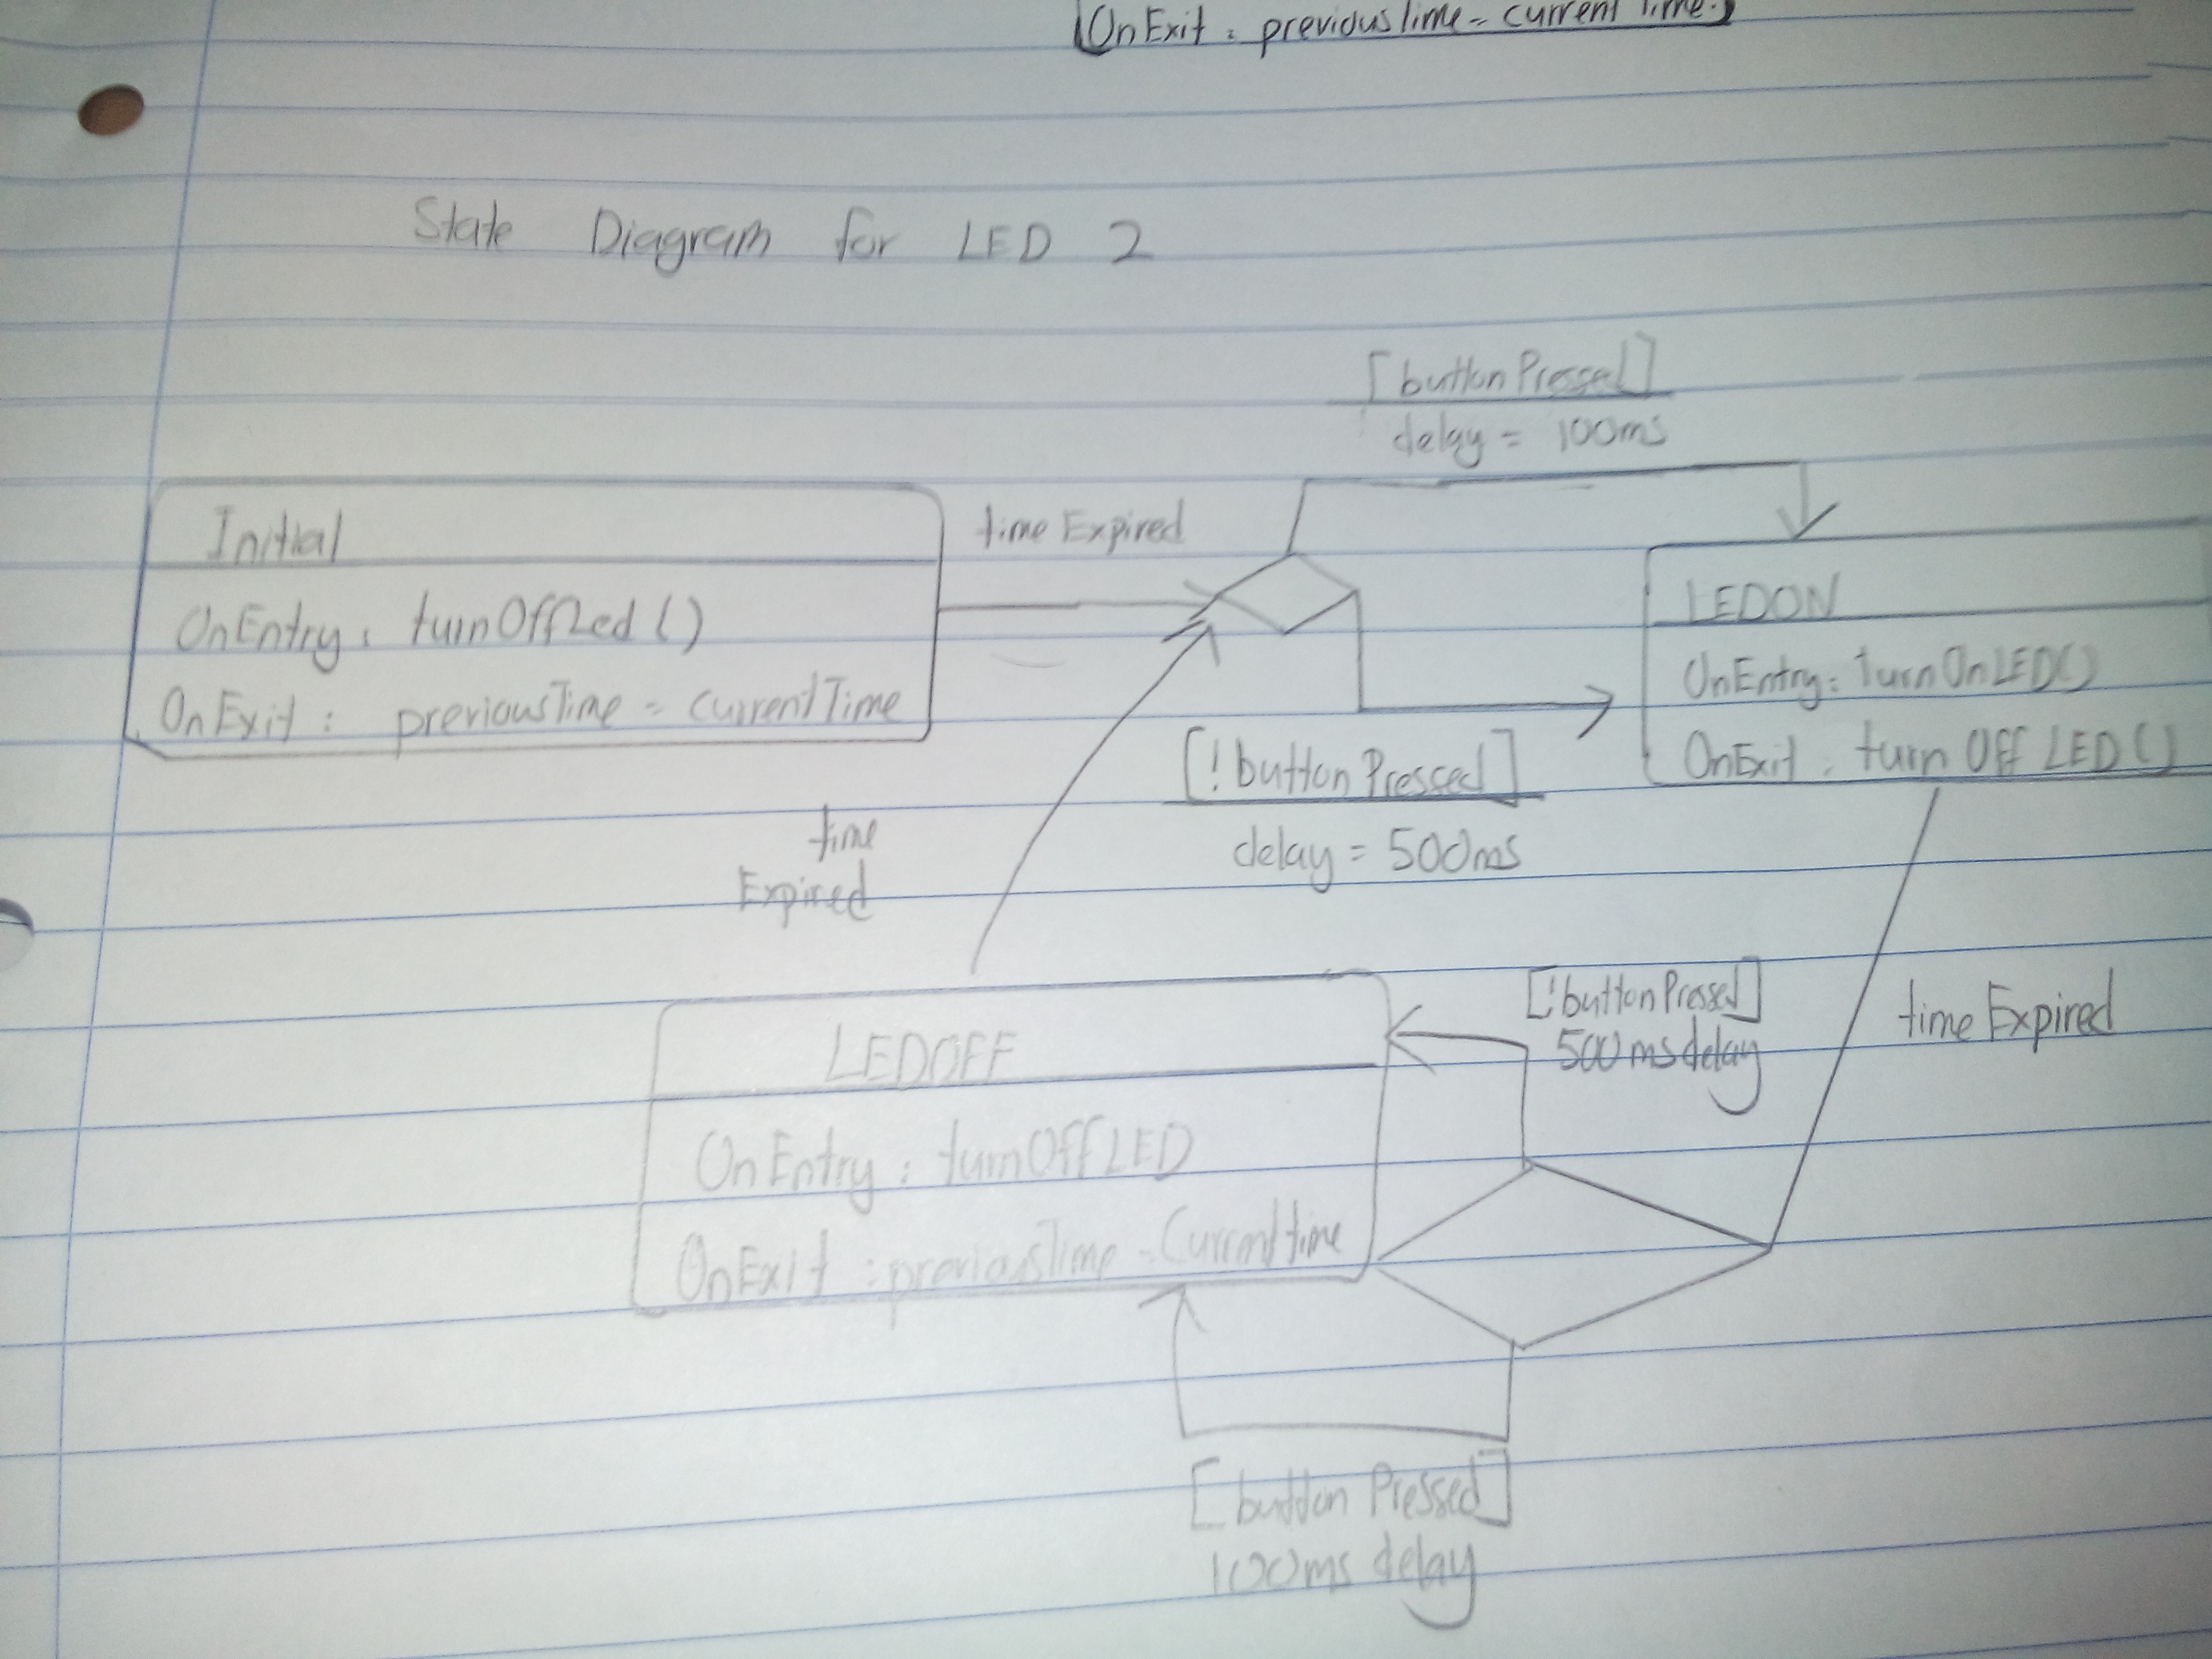 OnExit : previousTime = current Time.
State Diagram for LED 2
[buttonPressed]
delay = 100ms
Initial
time Expired
OnEntry : turnOffLed ()
OnExit : previousTime = currentTime
LEDON
OnEntry : turnOnLED()
OnExit : turn Off LED ()
[! button Pressed]
delay = 500ms
time
Expired
[!buttonPressed]
500 ms delay
time Expired
LEDOFF
OnEntry : turnOffLED
OnExit : previousTime = Currenttime
[button Pressed]
100ms delay